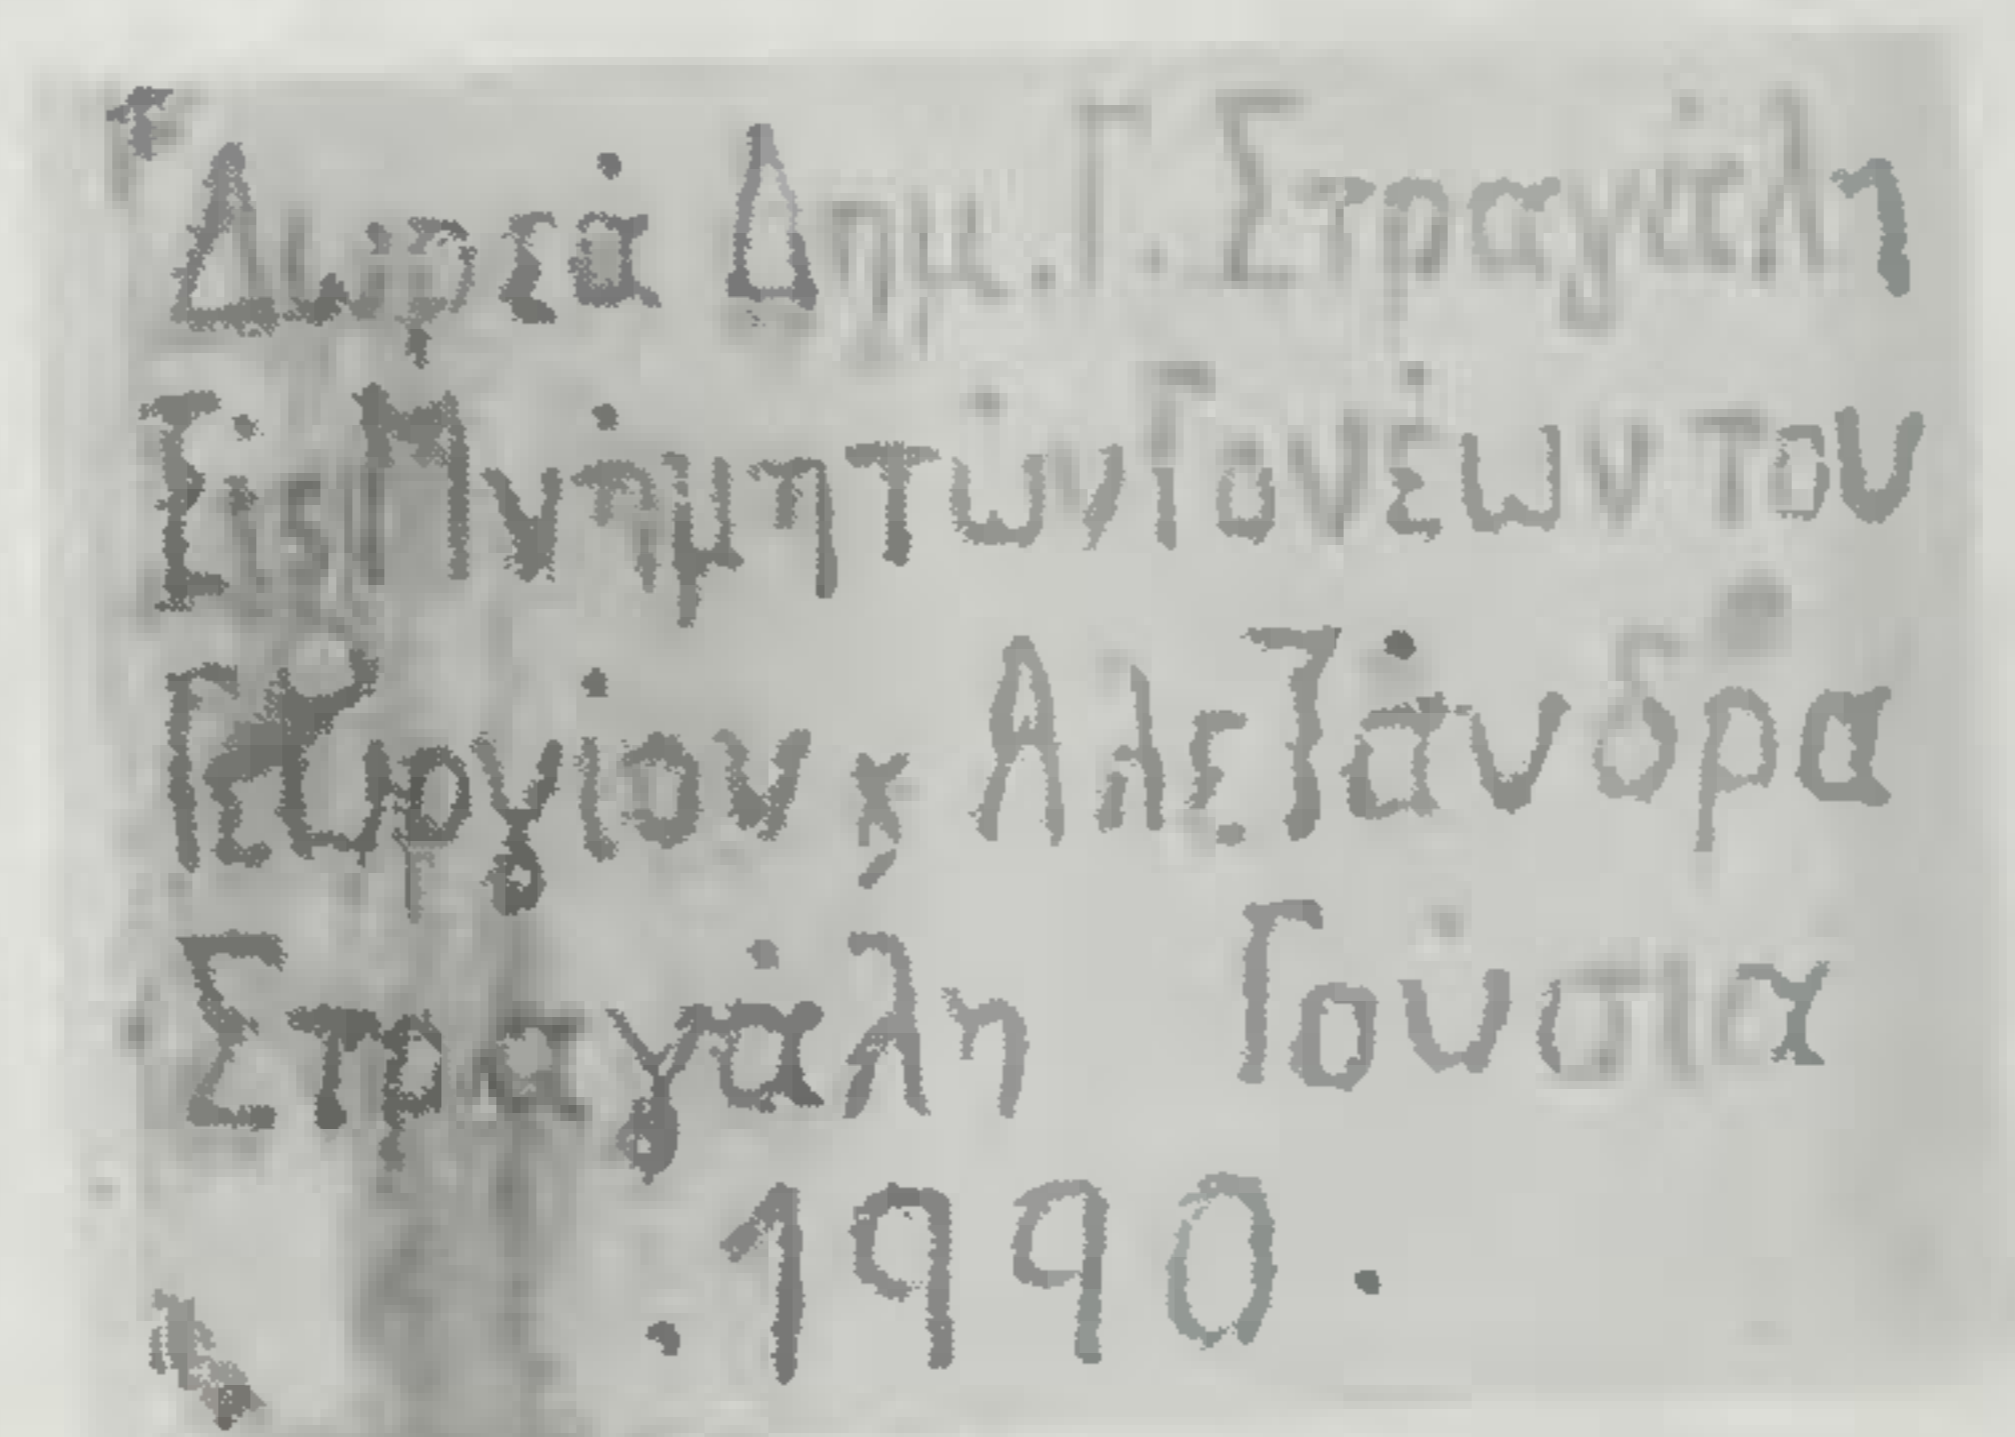 Δωρεά Δημ. Γ. Στραγάλη
Εις Μνήμη των Γονέων του
Γεώργιου ϗ Αλεξάνδρα
Στραγάλη Γούσια
1990